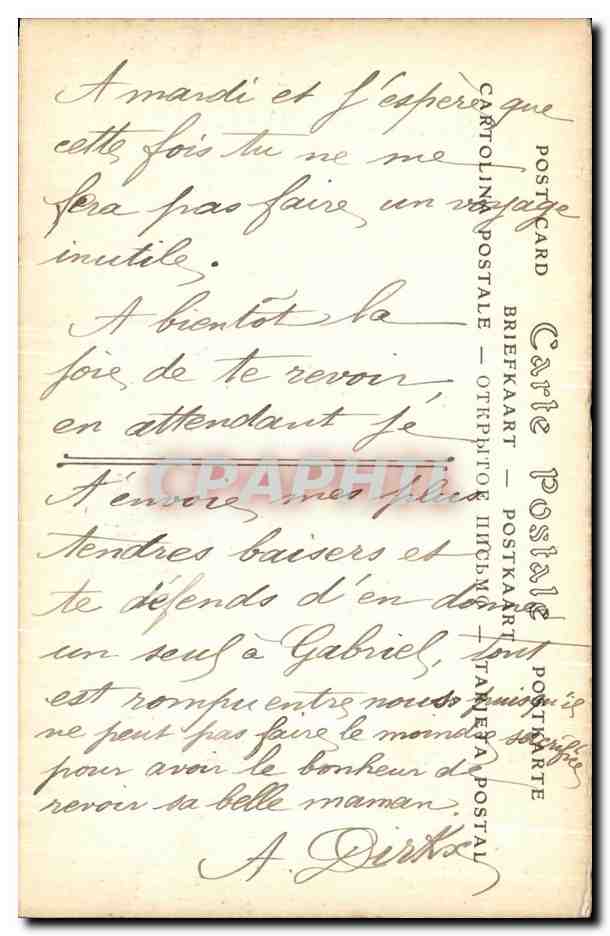 A mardi et j'espère que
cette fois tu ne me
fera pas faire un voyage
inutile.
A bientôt la
joie de te revoir
en attendant je
t'envoie mes plus
tendres baisers et
te défends d'en donner
un seul à Gabriel, tout
est rompu entre nous puisqu'il
ne peut pas faire le moindre sacrifice
pour avoir le bonheur de
revoir sa belle maman.
A. Dirkx
CPARHIL
POST CARD Carte Postale POSTKARTE
BRIEFKAART — POSTKAART
CARTOLINA POSTALE — ОТКРЫТОЕ ПИСЬМО — TARJETA POSTAL